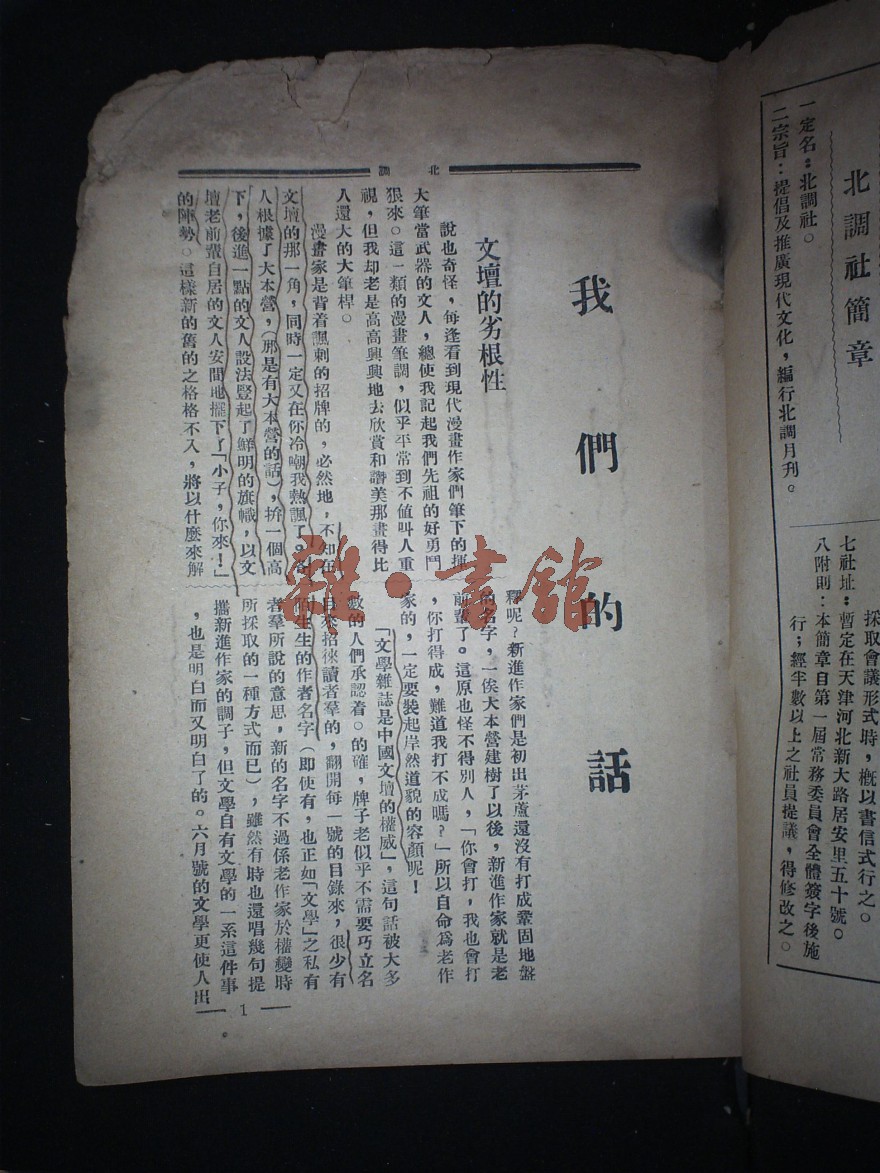 一定名：北調社。
二宗旨：提倡及推廣現代文化，編行北調月刊。
北調社簡章
採取會議形式時，概以書信式行之。
七社址：暫定在天津河北新大路居安里五十號。
八附則：本簡章自第一屆常務委員會全體簽字後施
行；經半數以上之社員提議，得修改之。
北調
我們的話
文壇的劣根性
說也奇怪，每逢看到現代漫畫作家們筆下的揮
大筆當武器的文人，總使我記起我們先祖的好勇鬥
狠來。這一類的漫畫筆調，似乎平常到不値叫人重
視，但我却老是高高興興地去欣賞和讚美那畫得比
人還大的大筆桿。
漫畫家是背着諷刺的招牌的，必然地，不知在
文壇的那一角，同時一定又在你冷嘲我熱諷了。各
人根據了大本營，（那是有大本營的話），拚一個高
下，後進一點的文人設法豎起了鮮明的旗幟，以文
壇老前輩自居的文人安閒地擺下了「小子，你來！」
的陣勢。這樣新的舊的之格格不入，將以什麼來解
釋呢？新進作家們是初出茅廬還沒有打成鞏固地盤
的名字，一俟大本營建樹了以後，新進作家就是老
前輩了。這原也怪不得別人，「你會打，我也會打
，你打得成，難道我打不成嗎？」所以自命爲老作
家的，一定要裝起岸然道貌的容顏呢！
「文學雜誌是中國文壇的權威」，這句話被大多
數的人們承認着。的確，牌子老似乎不需要巧立名
目來招徠讀者羣的，翻開每一號的目錄來，很少有
陌生生的作者名字（即使有，也正如「文學」之私有
者羣所說的意思，新的名字不過係老作家於權變時
所採取的一種方式而已），雖然有時也還唱幾句提
攜新進作家的調子，但文學自有文學的一系這件事
，也是明白而又明白了的。六月號的文學更使人出
1
雜·書館